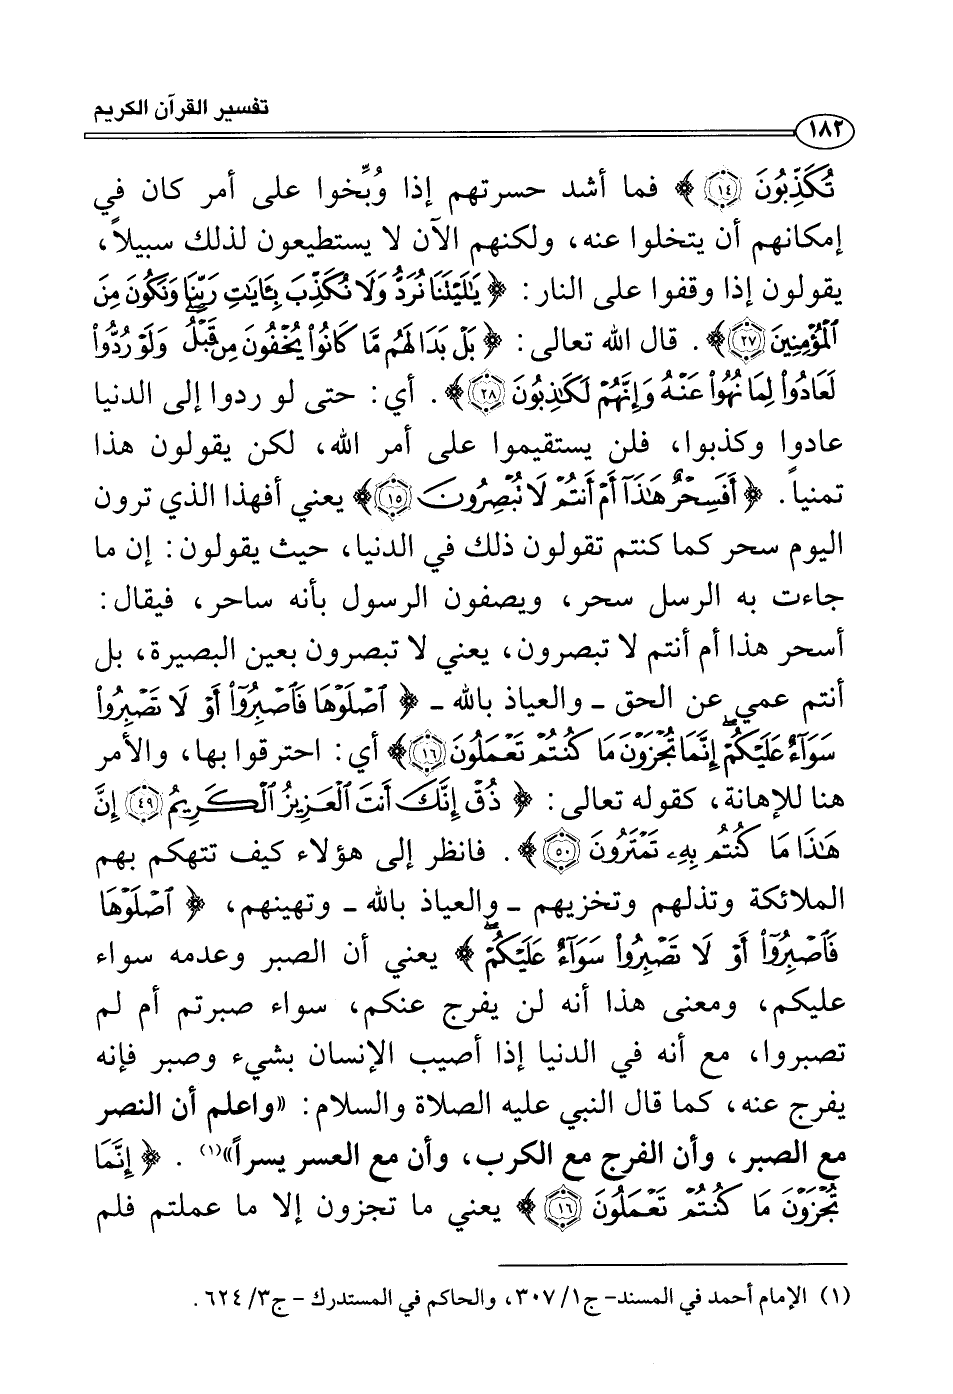 تفسير القرآن الكريم
١٨٢
تُكَذِّبُونَ ١٤ ﴾ فما أشد حسرتهم إذا وُبِّخوا على أمر كان في
إمكانهم أن يتخلوا عنه، ولكنهم الآن لا يستطيعون لذلك سبيلاً،
يقولون إذا وقفوا على النار: ﴿ يَٰلَيْتَنَا نُرَدُّ وَلَا نُكَذِّبَ بِـَٔايَٰتِ رَبِّنَا وَنَكُونَ مِنَ
ٱلْمُؤْمِنِينَ ٢٧ ﴾. قال الله تعالى: ﴿ بَلْ بَدَا لَهُم مَّا كَانُوا۟ يُخْفُونَ مِن قَبْلُ ۖ وَلَوْ رُدُّوا۟
لَعَادُوا۟ لِمَا نُهُوا۟ عَنْهُ وَإِنَّهُمْ لَكَٰذِبُونَ ٢٨ ﴾. أي: حتى لو ردوا إلى الدنيا
عادوا وكذبوا، فلن يستقيموا على أمر الله، لكن يقولون هذا
تمنياً. ﴿ أَفَسِحْرٌ هَٰذَآ أَمْ أَنتُمْ لَا تُبْصِرُونَ ١٥ ﴾ يعني أفهذا الذي ترون
اليوم سحر كما كنتم تقولون ذلك في الدنيا، حيث يقولون: إن ما
جاءت به الرسل سحر، ويصفون الرسول بأنه ساحر، فيقال:
أسحر هذا أم أنتم لا تبصرون، يعني لا تبصرون بعين البصيرة، بل
أنتم عمي عن الحق ـ والعياذ بالله ـ ﴿ ٱصْلَوْهَا فَٱصْبِرُوٓا۟ أَوْ لَا تَصْبِرُوا۟
سَوَآءٌ عَلَيْكُمْ ۖ إِنَّمَا تُجْزَوْنَ مَا كُنتُمْ تَعْمَلُونَ ١٦ ﴾ أي: احترقوا بها، والأمر
هنا للإهانة، كقوله تعالى: ﴿ ذُقْ إِنَّكَ أَنتَ ٱلْعَزِيزُ ٱلْكَرِيمُ ٤٩ إِنَّ
هَٰذَا مَا كُنتُم بِهِۦ تَمْتَرُونَ ٥٠ ﴾. فانظر إلى هؤلاء كيف تتهكم بهم
الملائكة وتذلهم وتخزيهم ـ والعياذ بالله ـ وتهينهم، ﴿ ٱصْلَوْهَا
فَٱصْبِرُوٓا۟ أَوْ لَا تَصْبِرُوا۟ سَوَآءٌ عَلَيْكُمْ ۖ ﴾ يعني أن الصبر وعدمه سواء
عليكم، ومعنى هذا أنه لن يفرج عنكم، سواء صبرتم أم لم
تصبروا، مع أنه في الدنيا إذا أصيب الإنسان بشيء وصبر فإنه
يفرج عنه، كما قال النبي عليه الصلاة والسلام: «واعلم أن النصر
مع الصبر، وأن الفرج مع الكرب، وأن مع العسر يسراً»(١). ﴿ إِنَّمَا
تُجْزَوْنَ مَا كُنتُمْ تَعْمَلُونَ ١٦ ﴾ يعني ما تجزون إلا ما عملتم فلم
(١) الإمام أحمد في المسند- ج١/ ٣٠٧، والحاكم في المستدرك - ج٣/ ٦٢٤.